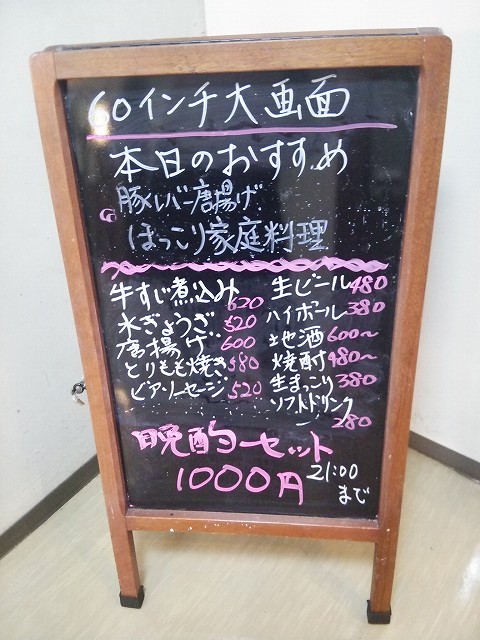 60インチ大画面
本日のおすすめ
豚レバー唐揚げ
ほっこり家庭料理
牛すじ煮込み 620
水ぎょうざ 520
唐揚げ 600
とりもも焼き 580
ビアソーセージ 520
生ビール 480
ハイボール 380
地酒 600〜
焼酎 480〜
生まっこり 380
ソフトドリンク 280
晩酌セット
1000円 21:00まで